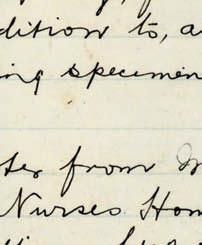 dition to, a
ing specimen
ter from M
Nurses Hom